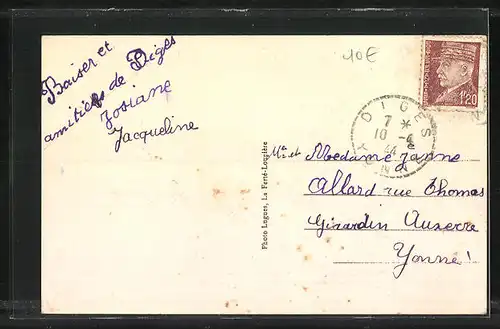 Baiser et
amitiés de Diges
Josiane
Jacqueline
10€
1F20
DIGES
7 *
10 - 4
44
YONNE
Photo Logues, La Ferté-Loupière
Mr et Madame Janne
Allard rue Thomas
Girardin Auxerre
Yonne!